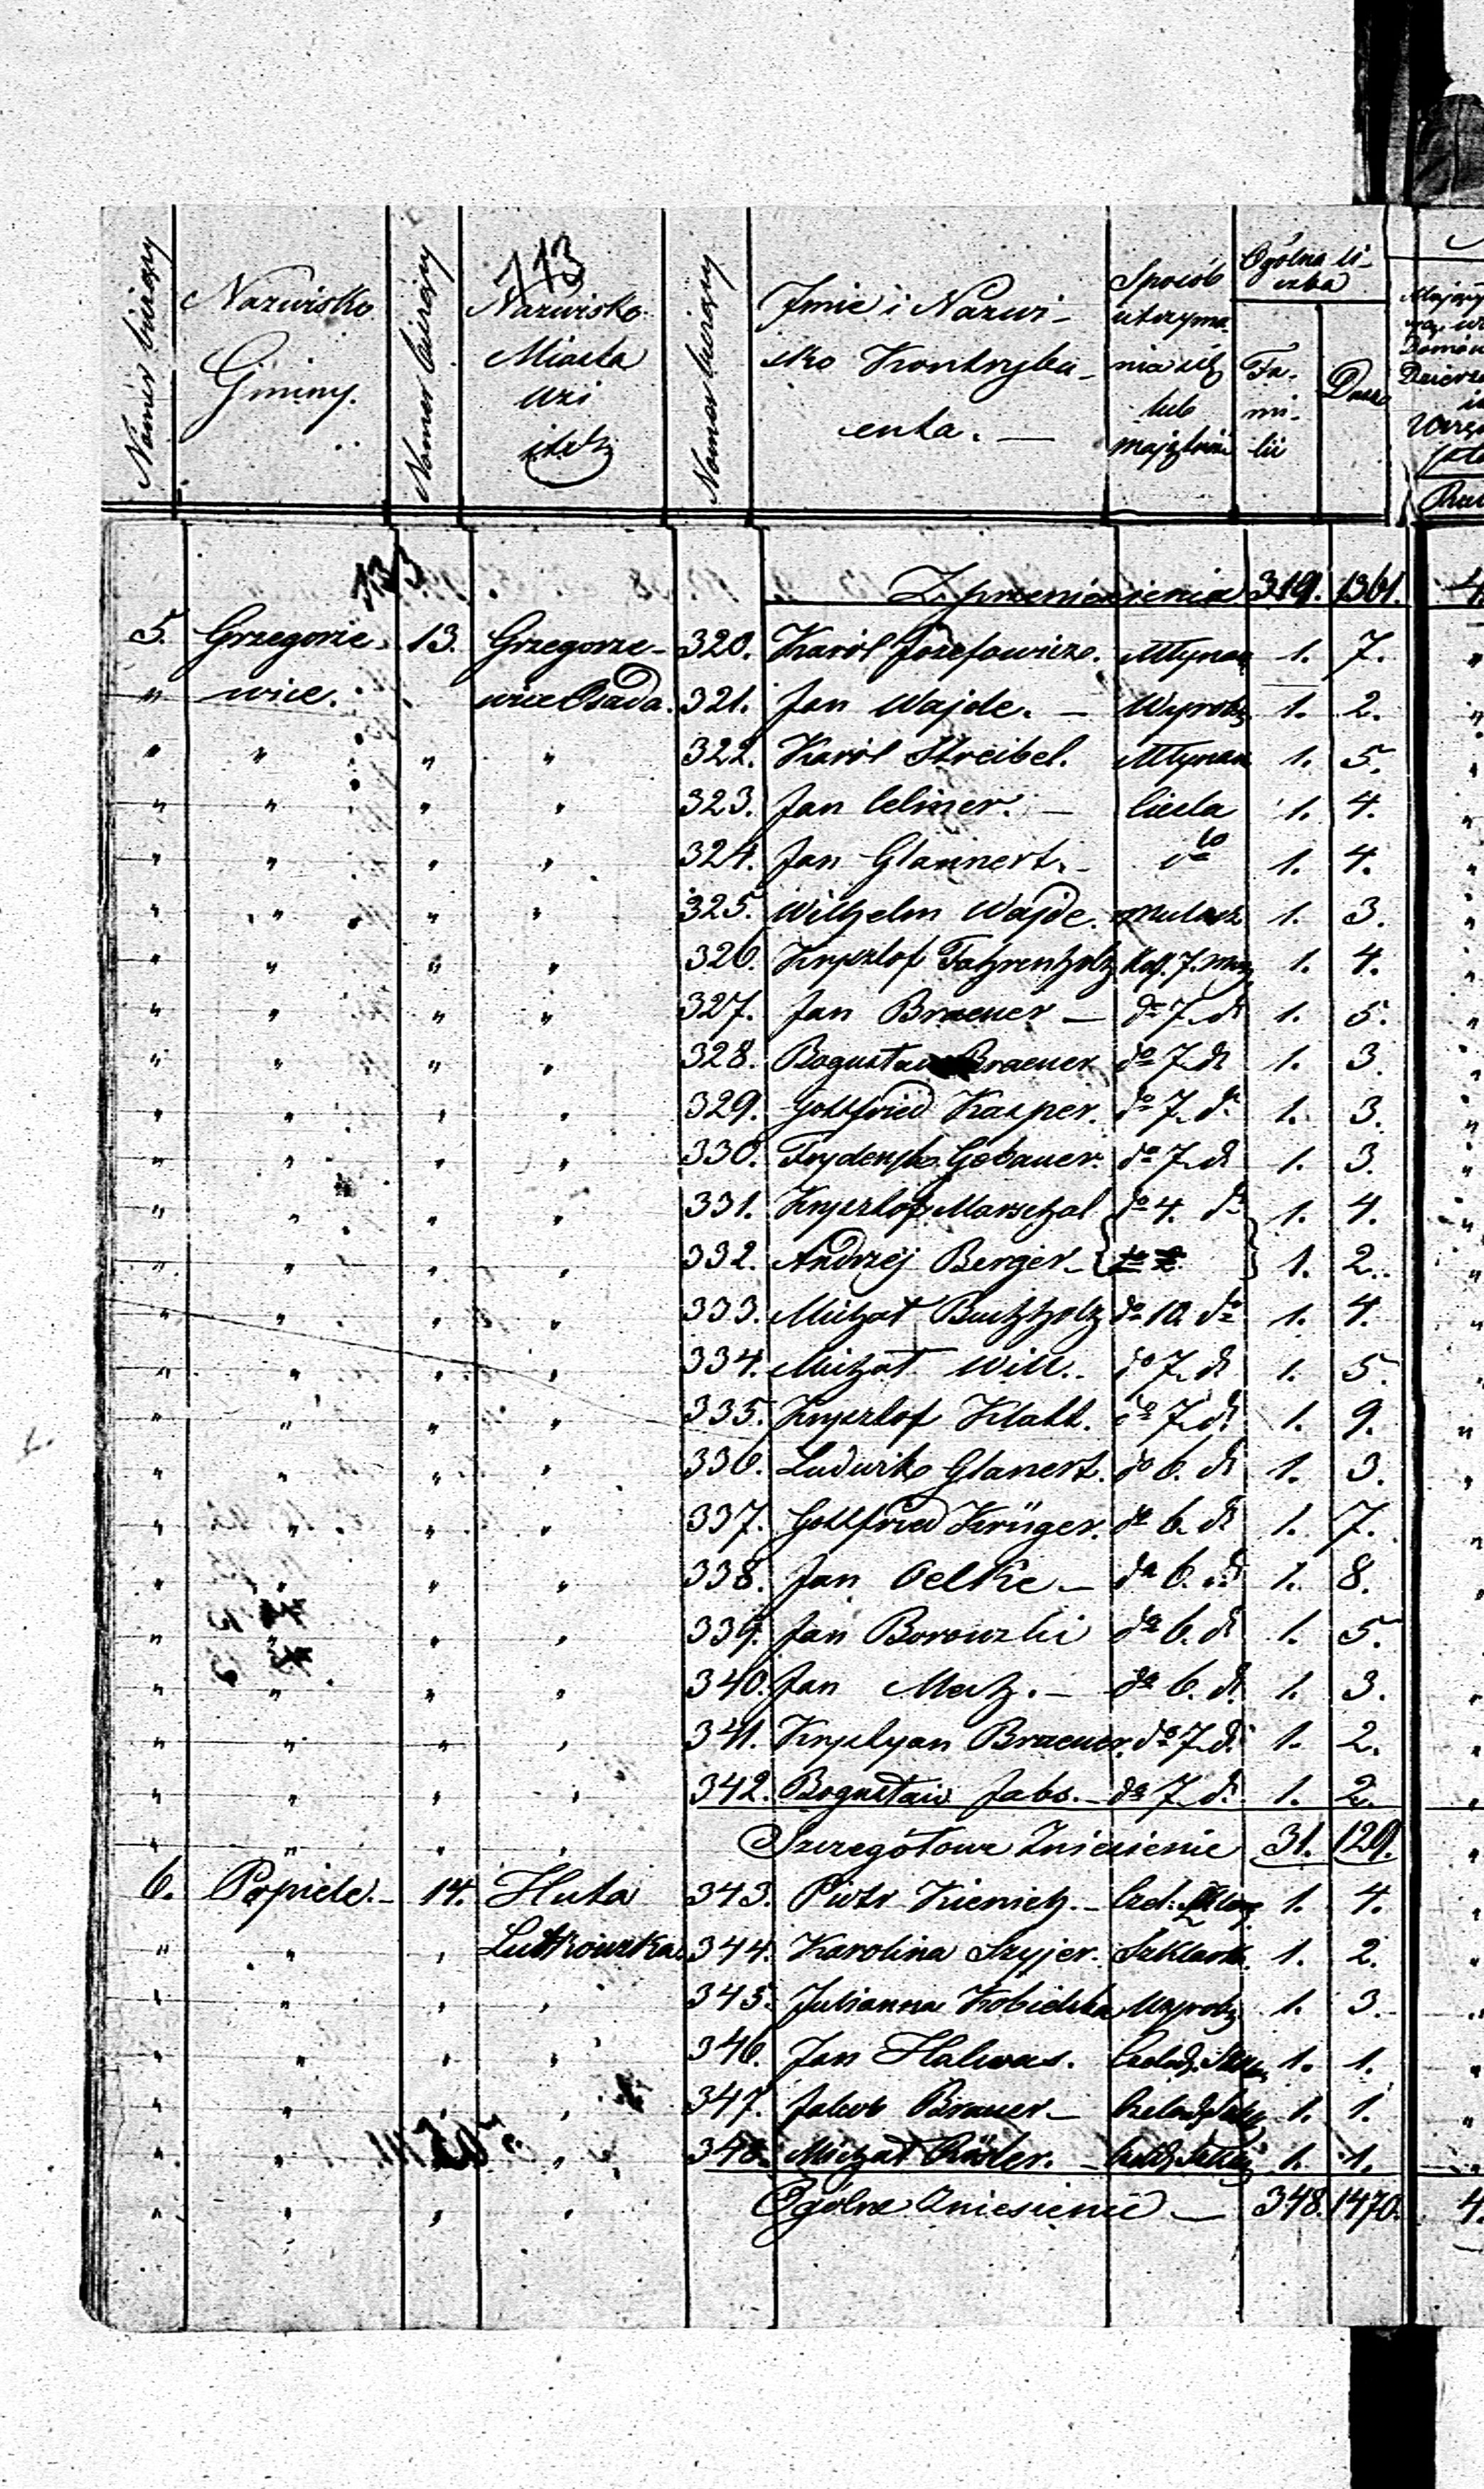 113
Nomer bieżący
Nazwisko Gminy.
Nomer bieżący
Nazwisko Miasta wsi itd
Nomer bieżący
Imie i Nazwi- sko Kontrybu- enta. —
Sposób utrzyma nia się lub majątków
Ogólna li- czba
Fa- mi- lii
Dusz
133
Z przeniesienia 319. 1361.
5. Grzegorze- 13. Grzegorze- 320. Karól Jozefowicz. Młynar 1. 7.
" wice. wice Osada. 321. Jan Wajde. — Wyrob 1. 2.
" " " " 322. Karól Streibel. Młynar 1. 5.
" " " " 323. Jan Celmer. — Cieśla 1. 4.
" " " " 324. Jan Glannert. - dto 1. 4.
" " " " 325. Wilhelm Wajde. mularz 1. 3.
" " " " 326. Krysztof Fahrenholz Kol. 7. mor 1. 4.
" " " " 327. Jan Braeuer — do 7. do 1. 5.
" " " " 328. Bogusław Braeuer do 7. do 1. 3.
" " " " 329. Gottfried Kasper. do 7. do 1. 3.
" " " " 330. Fryderyk Gebauer. do 7. do 1. 3.
" " " " 331. Krysztof Marschal do 4. do 1. 4.
" " " " 332. Andrzéj Berger - 1. 2.
" " " " 333. Michał Buchholz do 10. do 1. 4.
" " " " 334. Michał Will. do 7. do 1. 5.
" " " " 335. Krysztof Klatt. do 7. do 1. 9.
" " " " 336. Ludwik Glanert. do 6. do 1. 3.
" " " " 337. Gottfried Krüger. do 6. do 1. 7.
" " " " 338. Jan Oelke — do 6. do 1. 8.
" " " " 339. Jan Borowski do 6. do 1. 5.
" " " " 340. Jan Metz. — do 6. do 1. 3.
" " " " 341. Krystyan Braeuer. do 7. do 1. 2.
" " " " 342. Bogusław Jabs. - do 7. do 1. 2.
" " " " Szczegółowe Zniesienie 31. 129.
6. Popiele. - 14. Huta 343. Piotr Kienich. - Czel. 1. 4.
" " " Lutkowska. 344. Karolina Szyjer. Szklark. 1. 2.
" " " " 345. Julianna Kobielska Wyrob 1. 3.
" " " " 346. Jan Halwas. Czelad. 1. 1.
" " " " 347. Jakob Brauer - Czelad. 1. 1.
" " " " 348. Michał Rösler. - 1. 1.
" " " " Ogólne Zniesienie — 348. 1470.